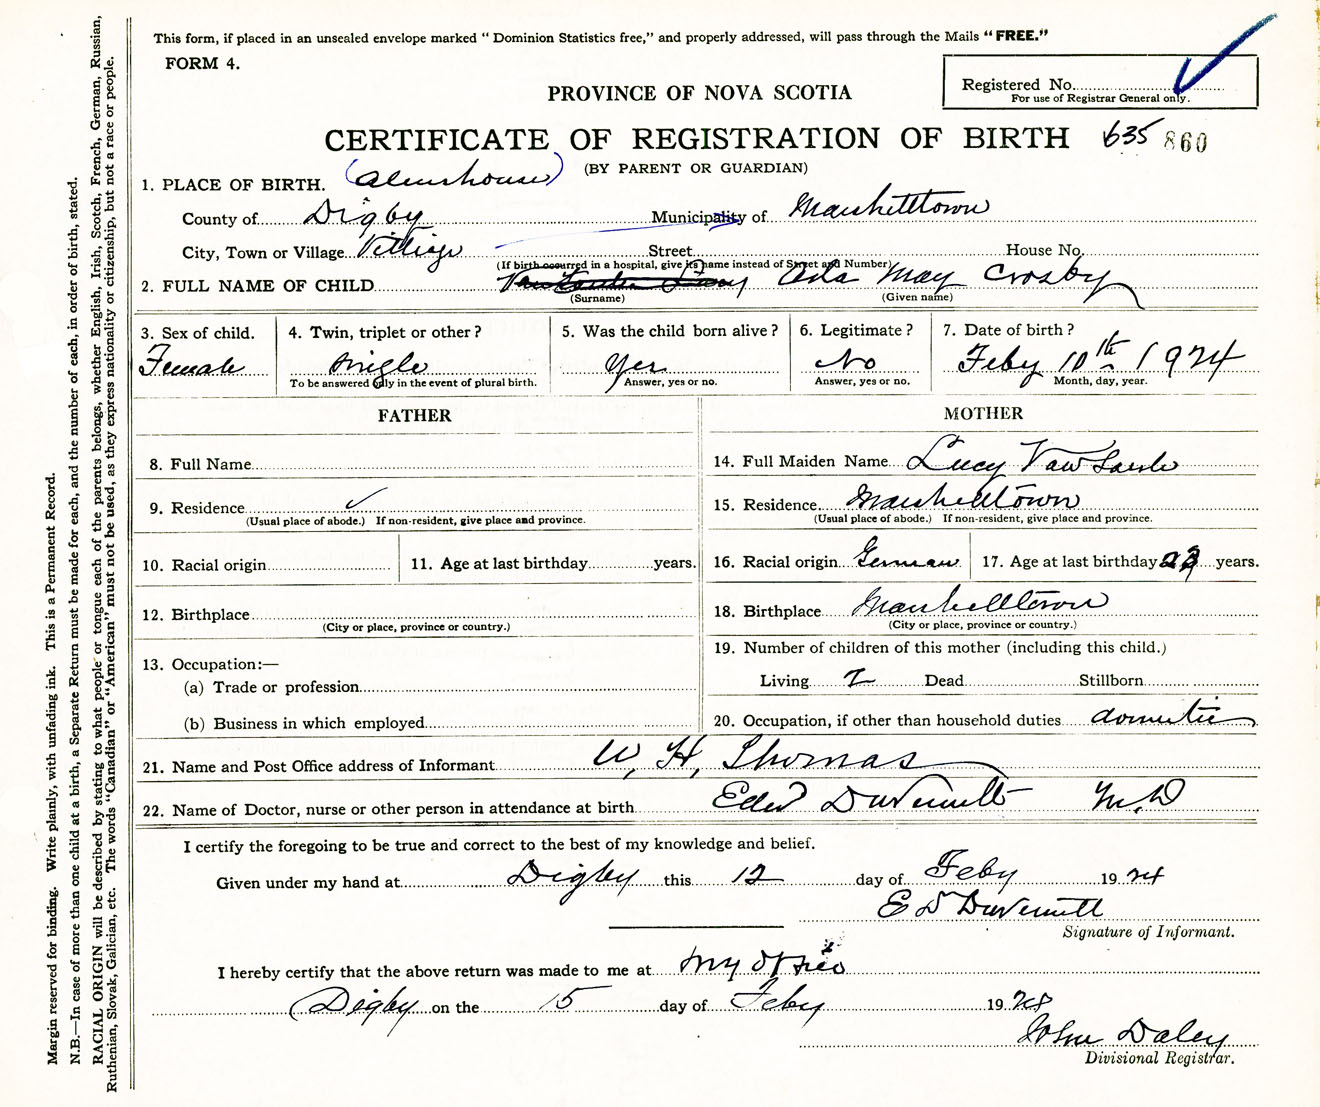 This form, if placed in an unsealed envelope marked "Dominion Statistics free," and properly addressed, will pass through the Mails "FREE."
FORM 4.
Registered No.
For use of Registrar General only.
PROVINCE OF NOVA SCOTIA
CERTIFICATE OF REGISTRATION OF BIRTH 635 860
(BY PARENT OR GUARDIAN)
1. PLACE OF BIRTH. (Almshouse)
County of Digby Municipality of Marshelltown
City, Town or Village Village Street House No.
(If birth occurred in a hospital, give its name instead of Street and Number)
2. FULL NAME OF CHILD May Crosby
(Surname) (Given name)
3. Sex of child. Female
4. Twin, triplet or other? single
To be answered only in the event of plural birth.
5. Was the child born alive? Yes
Answer, yes or no.
6. Legitimate? No
Answer, yes or no.
7. Date of birth? Feby 10th 1924
Month, day, year.
FATHER
8. Full Name
9. Residence
(Usual place of abode.) If non-resident, give place and province.
10. Racial origin 11. Age at last birthday years.
12. Birthplace
(City or place, province or country.)
13. Occupation:—
(a) Trade or profession
(b) Business in which employed
MOTHER
14. Full Maiden Name Lucy Van
15. Residence. Marshelltown
(Usual place of abode.) If non-resident, give place and province.
16. Racial origin German 17. Age at last birthday years.
18. Birthplace Marshelltown
(City or place, province or country.)
19. Number of children of this mother (including this child.)
Living 2 Dead Stillborn
20. Occupation, if other than household duties domestic
21. Name and Post Office address of Informant W. H. Thomas
22. Name of Doctor, nurse or other person in attendance at birth DuVernett M.D
I certify the foregoing to be true and correct to the best of my knowledge and belief.
Given under my hand at Digby this 12 day of Feby 19 24
E D DuVernett
Signature of Informant.
I hereby certify that the above return was made to me at My office
Digby on the 15 day of Feby 19 24
John Daley
Divisional Registrar.
Margin reserved for binding. Write plainly, with unfading ink. This is a Permanent Record.
N.B.—In case of more than one child at a birth, a Separate Return must be made for each, and the number of each, in order of birth, stated.
RACIAL ORIGIN will be described by stating to what people or tongue each of the parents belongs, whether English, Irish, Scotch, French, German, Russian,
Ruthenian, Slovak, Galician, etc. The words "Canadian" or "American" must not be used, as they express nationality or citizenship, but not a race or people.